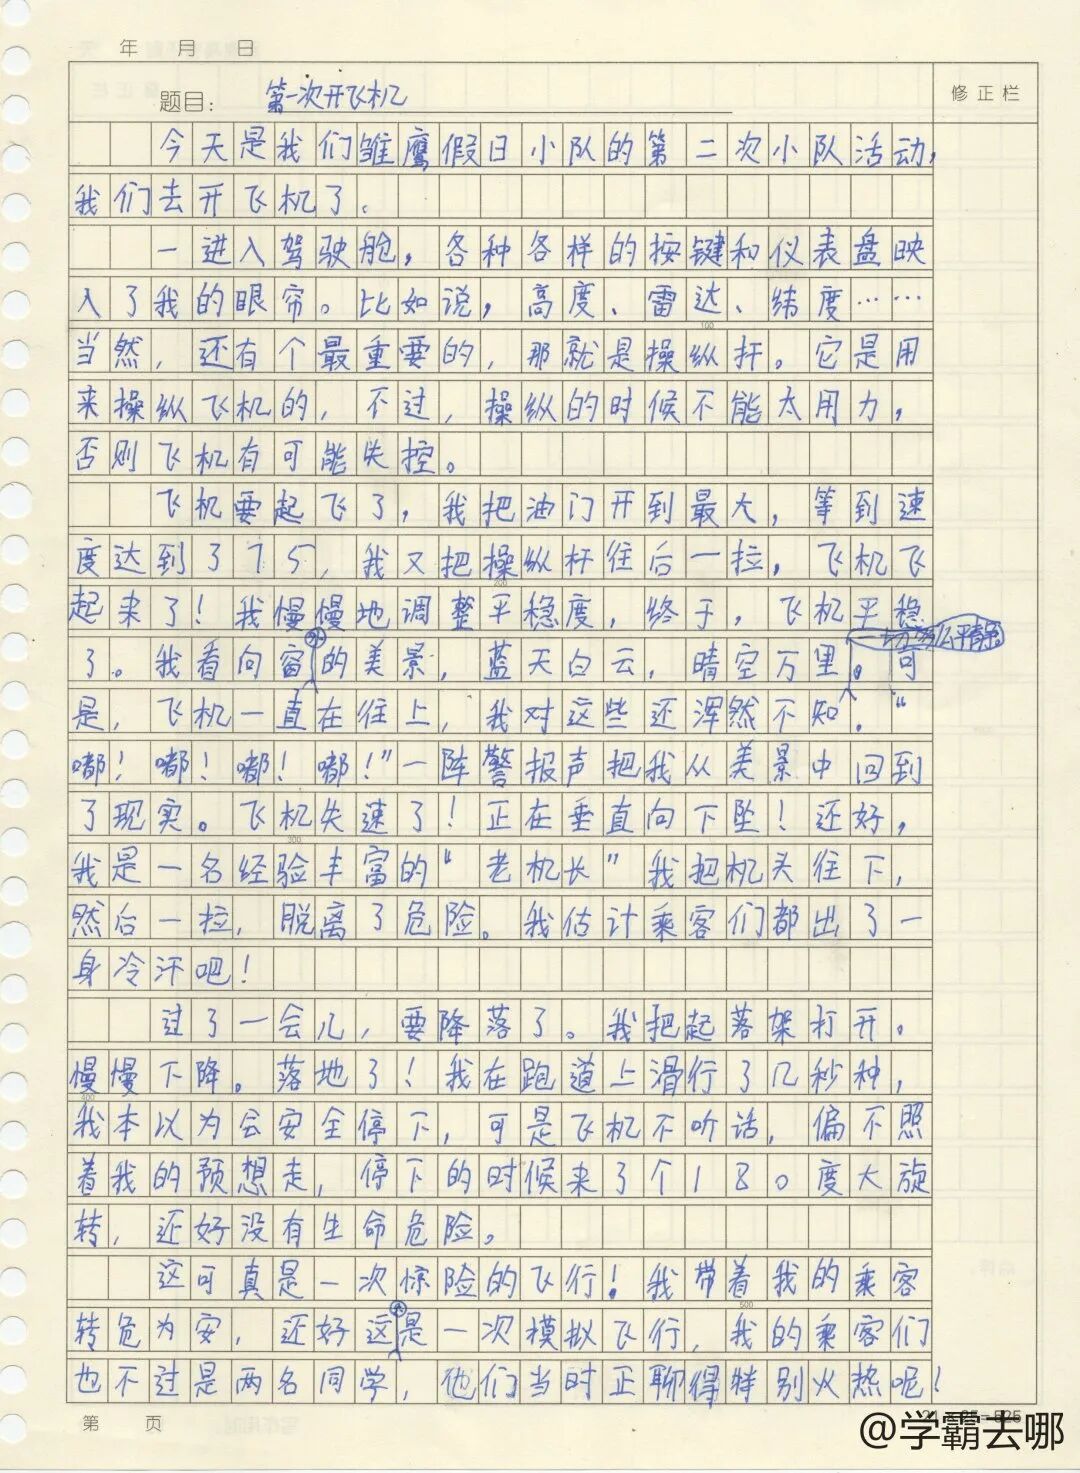 年 月 日
题目： 第一次开飞机
修正栏
今天是我们雏鹰假日小队的第二次小队活动，
我们去开飞机了.
一进入驾驶舱，各种各样的按键和仪表盘映
入了我的眼帘。比如说，高度、雷达、纬度……
100
当然，还有个最重要的，那就是操纵扞。它是用
来操纵飞机的，不过，操纵的时候不能太用力，
否则飞机有可能失控。
飞机要起飞了，我把油门开到最大，等到速
度达到375，我又把操纵杆往后一拉，飞机飞
200
起来了！我慢慢地调整平稳度，终于，飞机平稳
外
了。我看向窗的美景，蓝天白云，晴空万里。可
是，飞机一直在往上，我对这些还浑然不知.“
嘟！嘟！嘟！嘟！”一阵警报声把我从美景中回到
了现实。飞机失速了！正在垂直向下坠！还好，
300
我是一名经验丰富的“老机长”我把机头往下，
然后一拉，脱离了危险。我估计乘客们都出了一
身冷汗吧！
过了一会儿，要降落了。我把起落架打开.
慢慢下降。落地了！我在跑道上滑行了几秒种，
400
我本以为会安全停下，可是飞机不听话，偏不照
着我的预想走，停下的时候来了个180度大旋
转，还好没有生命危险。
这可真是一次惊险的飞行！我带着我的乘客
500
转危为安，还好这是一次模拟飞行，我的乘客们
也不过是两名同学，他们当时正聊得特别火热呢！
第 页
@学霸去哪